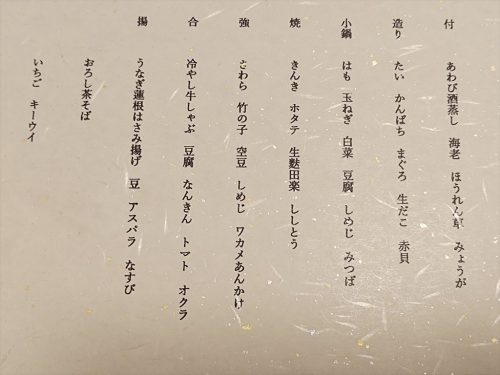 付 あわび酒蒸し 海老 ほうれん草 みょうが
造り たい かんぱち まぐろ 生だこ 赤貝
小鍋 はも 玉ねぎ 白菜 豆腐 しめじ みつば
焼 きんき ホタテ 生麩田楽 ししとう
強 さわら 竹の子 空豆 しめじ ワカメあんかけ
合 冷やし牛しゃぶ 豆腐 なんきん トマト オクラ
揚 うなぎ蓮根はさみ揚げ 豆 アスパラ なすび
おろし茶そば
いちご キーウイ